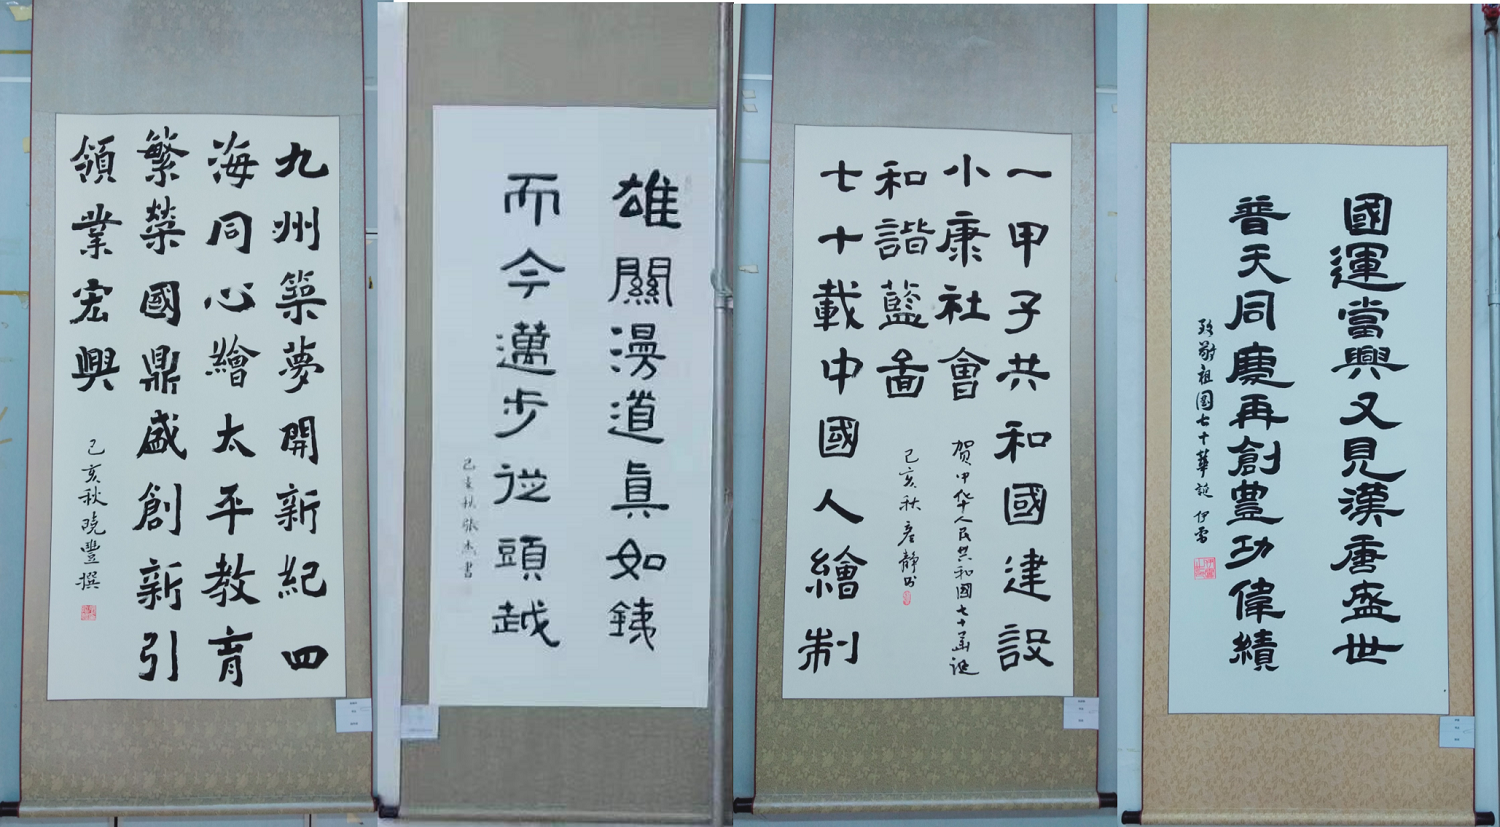 九州築夢開新紀四
海同心繪太平教育
繁榮國鼎盛創新引
領業宏興
己亥秋晓豐撰
雄關漫道真如銕
而今邁步從頭越
己亥秋張杰書
一甲子共和國建設
小康社會
贺中华人民共和國七十华诞
和諧藍啚
己亥秋彦靜书
七十載中國人繪制
國運當興又見漢唐盛世
普天同慶再創豊功偉績
致敬祖國七十華诞